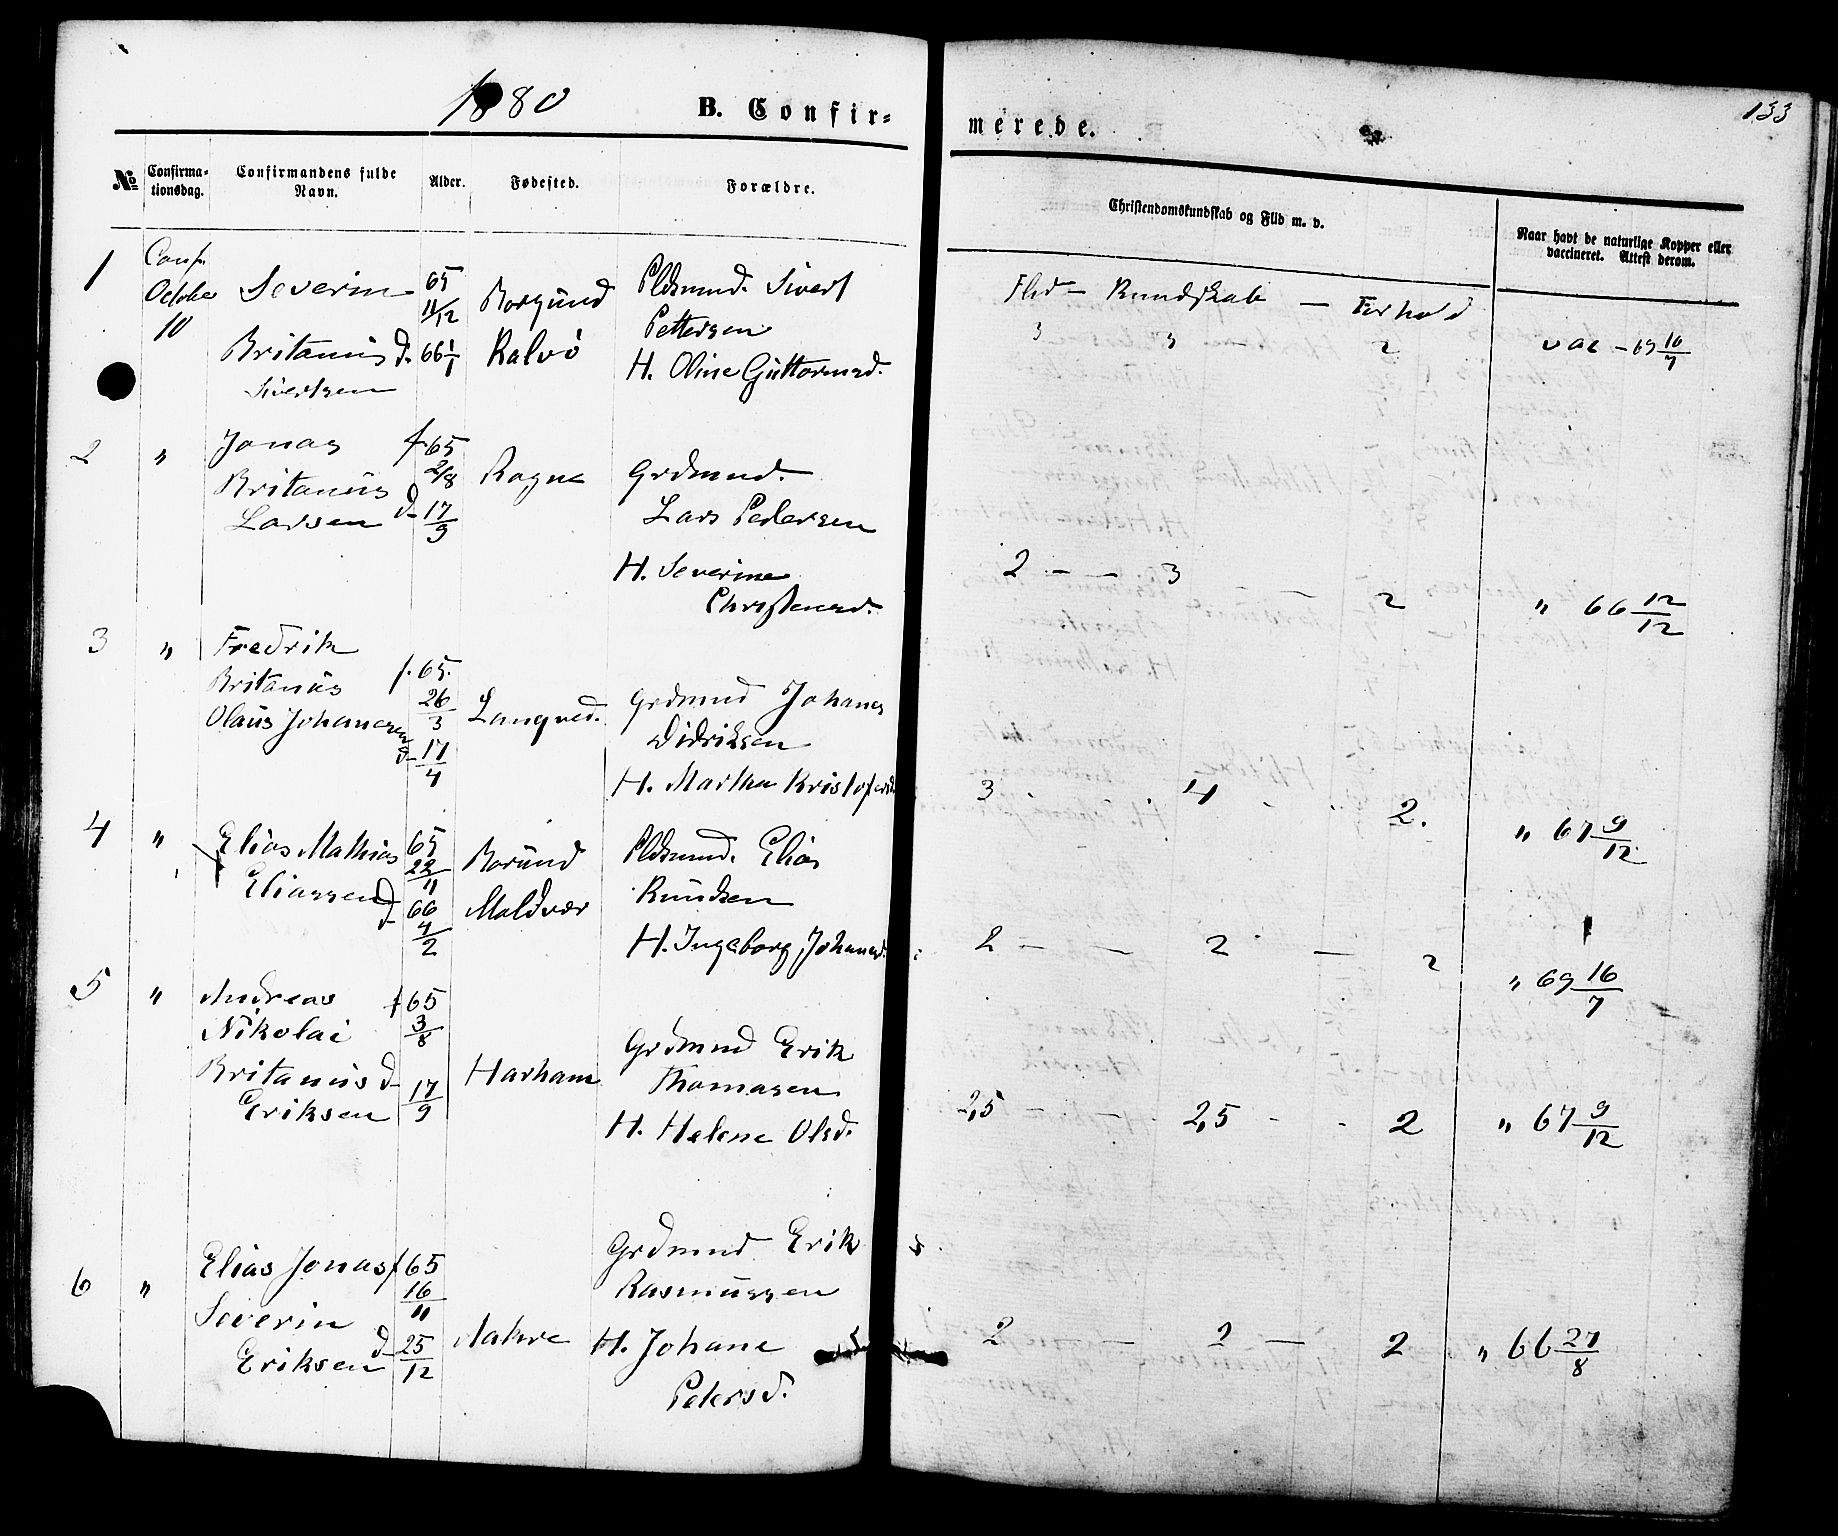 1880 B. Confir= merede. 133
No Confirma-tionsdag. Confirmandens fulde Navn. Alder. Fødested. Forældre. Christendomskundskab og Flid m. v. Naar havt de naturlige Kopper eller vaccineret. Attest derom.
Flid — Kundskab — Forhold
1 Conf. Severin 65 Borgund Pldsmd. Sivert
October 11/12 Pettersen 3 3 2 vac — 69 16/7
10 Britanus d. 66 1/1 Kalvö H. Oline Guttormsd.
Sivertsen
2 " Jonas f. 65
2/8
Britanus Rogne Grdmnd.
Larsen d. 17/9 Lars Pedersen
H. Severine 2 — — 3 — 2 " 66 12/12
Christensd.
3 " Fredrik
Britanus f. 65.
26/3
Olaus Johanesen Longved. Grdmnd Johanes
d. 17/4 Didriksen
H. Martha Kristofersd 3 4 2. " 67 9/12
4 " Elias Mathias 65 Borund Pldsmnd. Elias
22/11
Eliassen d. 66 Moldvær Knudsen
4/2
H. Ingeborg Johanesd. 2 — — 2 — 2 " 69 16/7
5 " Andreas f 65
Nikolai 3/8
Grdmnd Erik
Britanus d. 17/9 Harham Thomasen
Eriksen
H. Helene Olsd. 2,5 — — 2,5 - - 2 " 67 9/12
Grdmnd Erik
6 " Elias Jonas f 65
16/11 Rasmussen
Severin
Eriksen d. 25/12 Aakre H. Johane 2 — 2 — 2 " 66 27/8
Petersd.